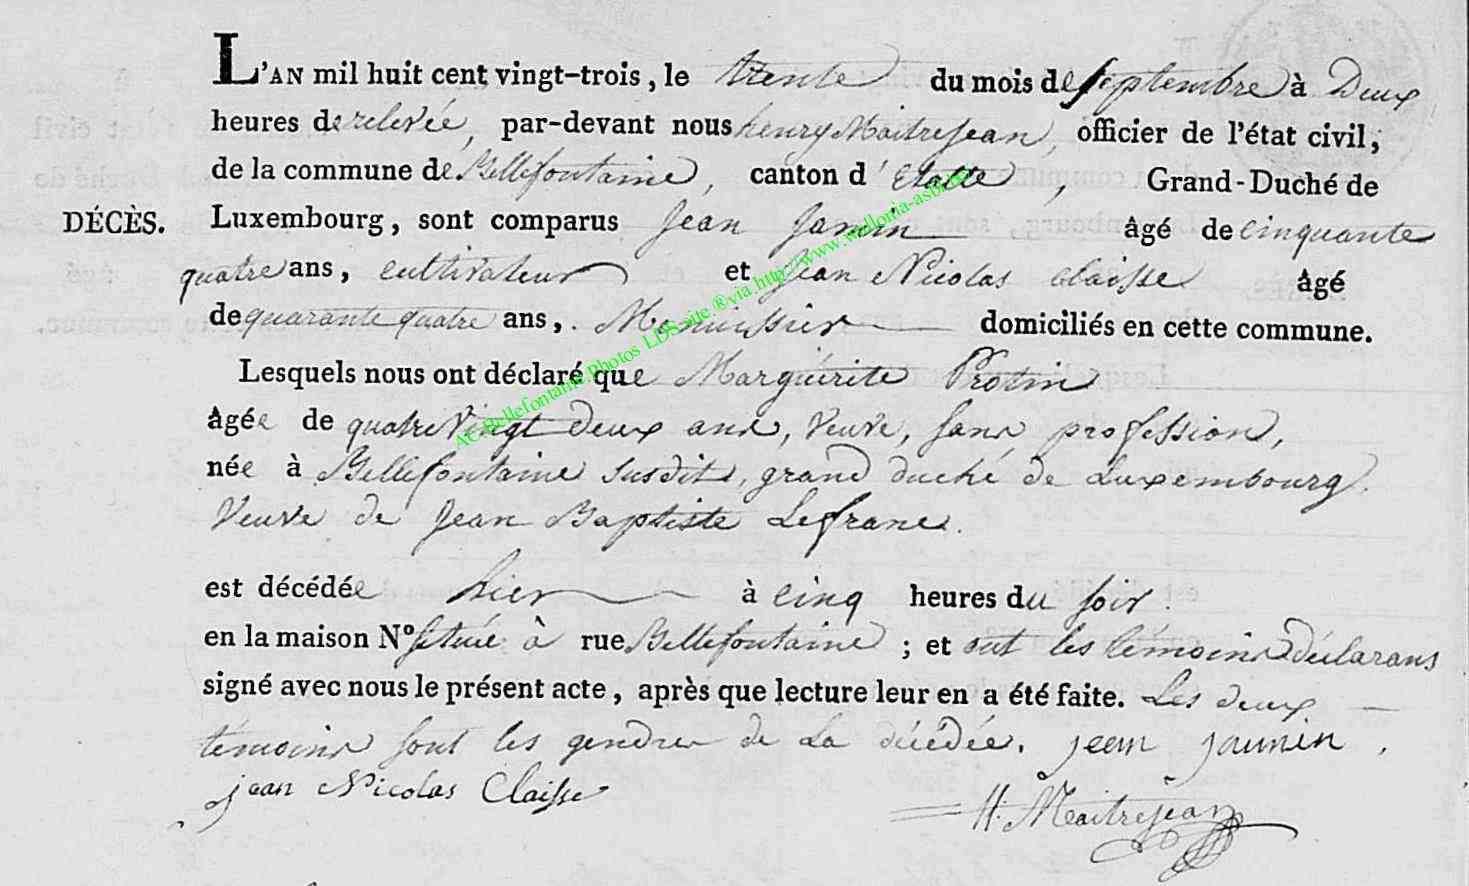 L'AN mil huit cent vingt-trois, le trente du mois de septembre à Deux
heures de relevée, par-devant nous henry Maitrejean, officier de l'état civil,
de la commune de Bellefontaine, canton d'Etalle, Grand-Duché de
DÉCÈS. Luxembourg, sont comparus Jean Jamin âgé de cinquante
quatre ans, cultivateur et Jean Nicolas Claisse âgé
de quarante quatre ans, Menuissier domiciliés en cette commune.
Lesquels nous ont déclaré que Marguérite Protin
âgée de quatre Vingt deux ans, Veuve, sans profession,
née à Bellefontaine susdit, grand duché de Luxembourg.
Veuve de Jean Baptiste Lefranc.
est décédée hier à cinq heures du soir.
en la maison N° située à rue Bellefontaine ; et ont les témoins déclarans
signé avec nous le présent acte, après que lecture leur en a été faite. Les deux
témoins sont les gendres de La décédée. jean jaumin,
jean Nicolas Claisse
H. Maitrejean
AC Bellefontaine.Photos LDS site ® via http://www.wallonia-asbl.be